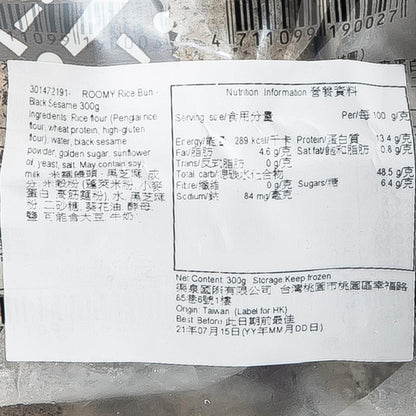 711099 190027
301472191- ROOMY Rice Bun -
Black Sesame 300g
Ingredients: Rice flour (Penglai rice
flour, wheat protein, high-gluten
flour), water, black sesame
powder, golden sugar, sunflower
oil, yeast, salt. May contain soy,
milk. 米糰饅頭- 黑芝麻 成
分: 米穀粉 (蓬萊米粉, 小麥
蛋白, 高筋麵粉), 水, 黑芝麻
粉, 二砂糖, 葵花油, 酵母,
鹽. 可能含大豆, 牛奶.
Nutrition Information 營養資料
Serving size/食用分量 Per/每 100 g/克
Energy/能量 289 kcal/千卡 Protein/蛋白質 13.4 g/克
Fat/脂肪 4.6 g/克 Sat fat/飽和脂肪 0.8 g/克
Trans/反式脂肪 0 g/克
Total carb/總碳水化合物 48.5 g/克
Fibre/纖維 0 g/克 Sugars/糖 6.4 g/克
Sodium/鈉 84 mg/毫克
Net Content: 300g Storage:Keep frozen
國際有限公司 台灣桃園市桃園區幸福路
85巷6號1樓
Origin: Taiwan (Label for HK)
Best Before: 此日期前最佳
21年07月15日(YY年MM月DD日)